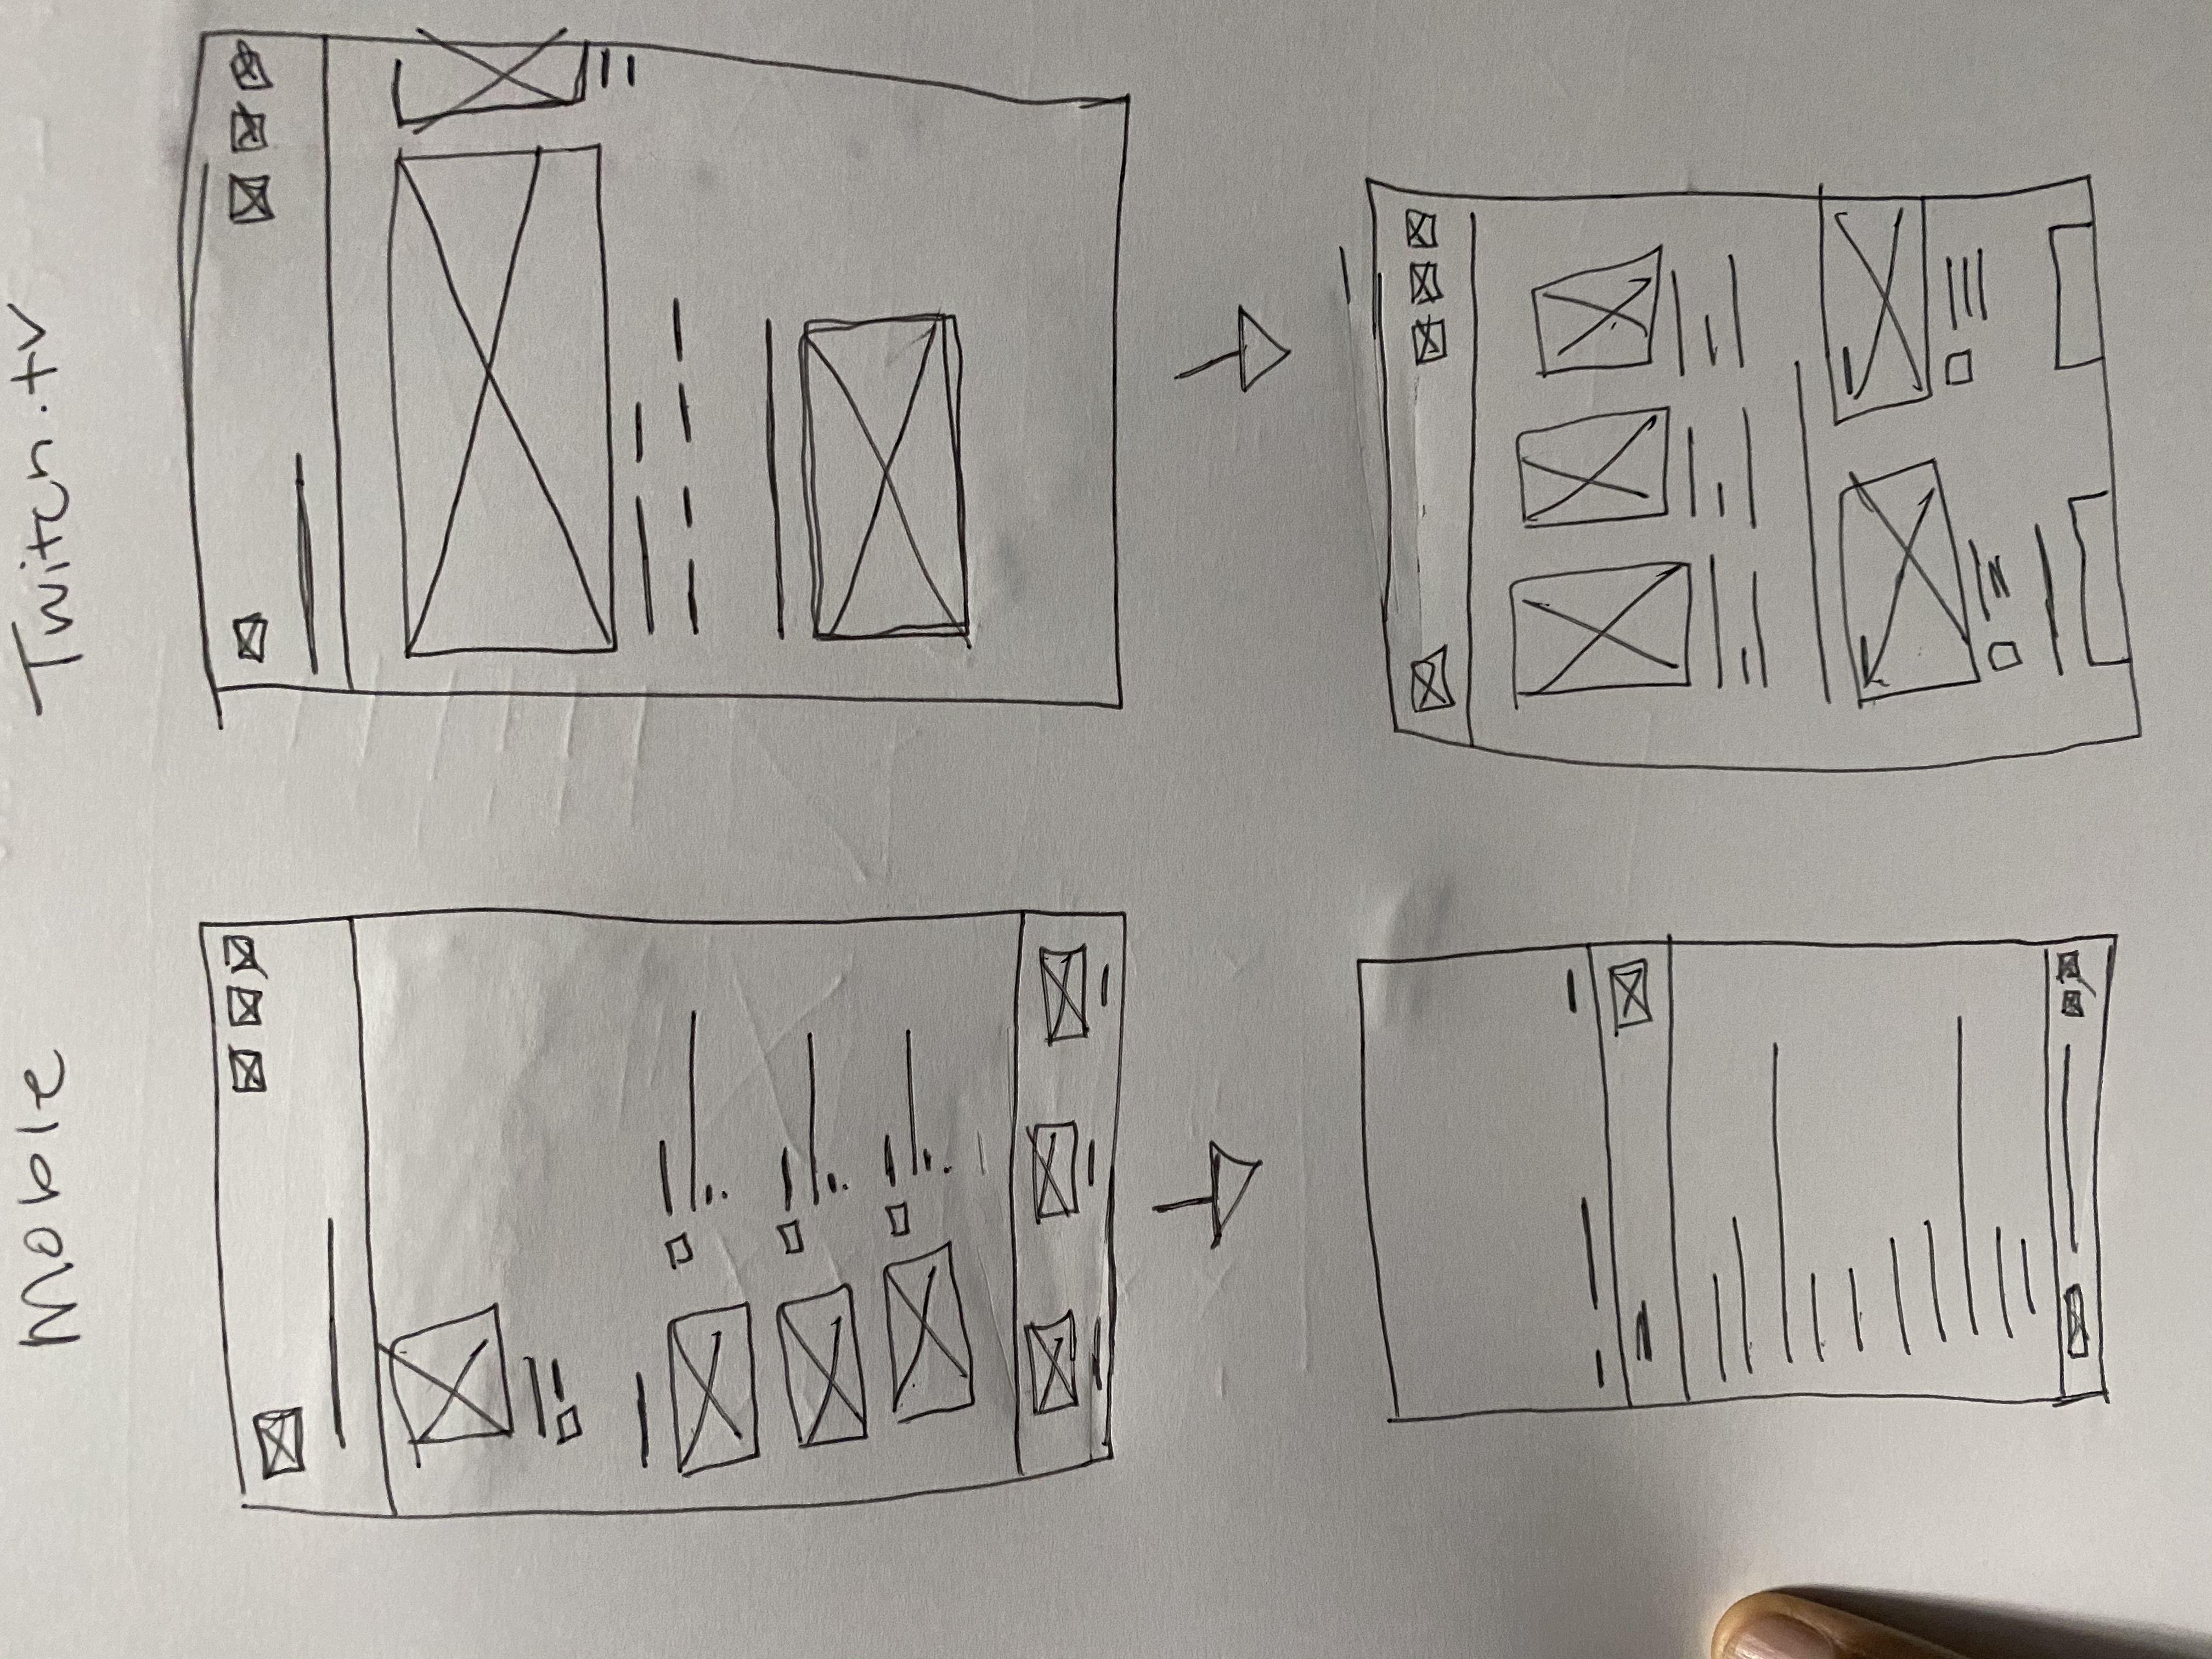 Moble
Twitch.tv